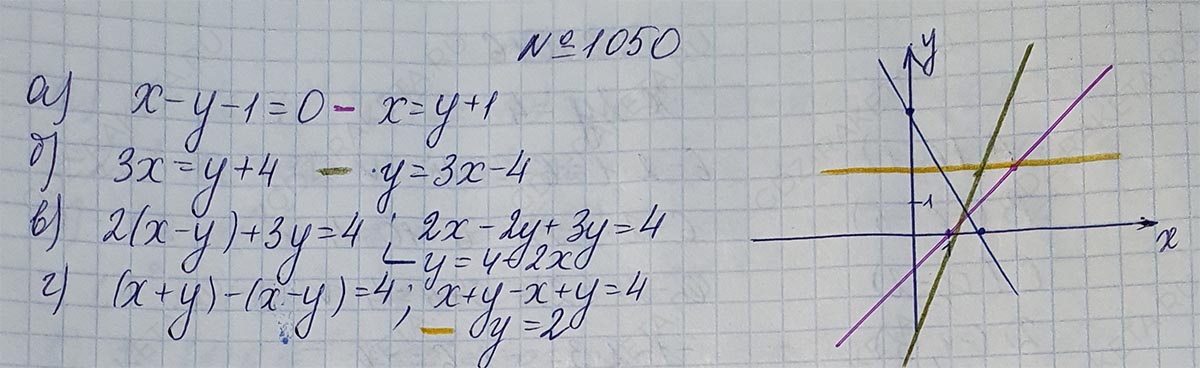 №1050
а) x-y-1=0 - x=y+1
б) 3x=y+4 - y=3x-4
в) 2(x-y)+3y=4; 2x-2y+3y=4
- y=4-2x
г) (x+y)-(x-y)=4; x+y-x+y=4
- y=2
y
1
1
x